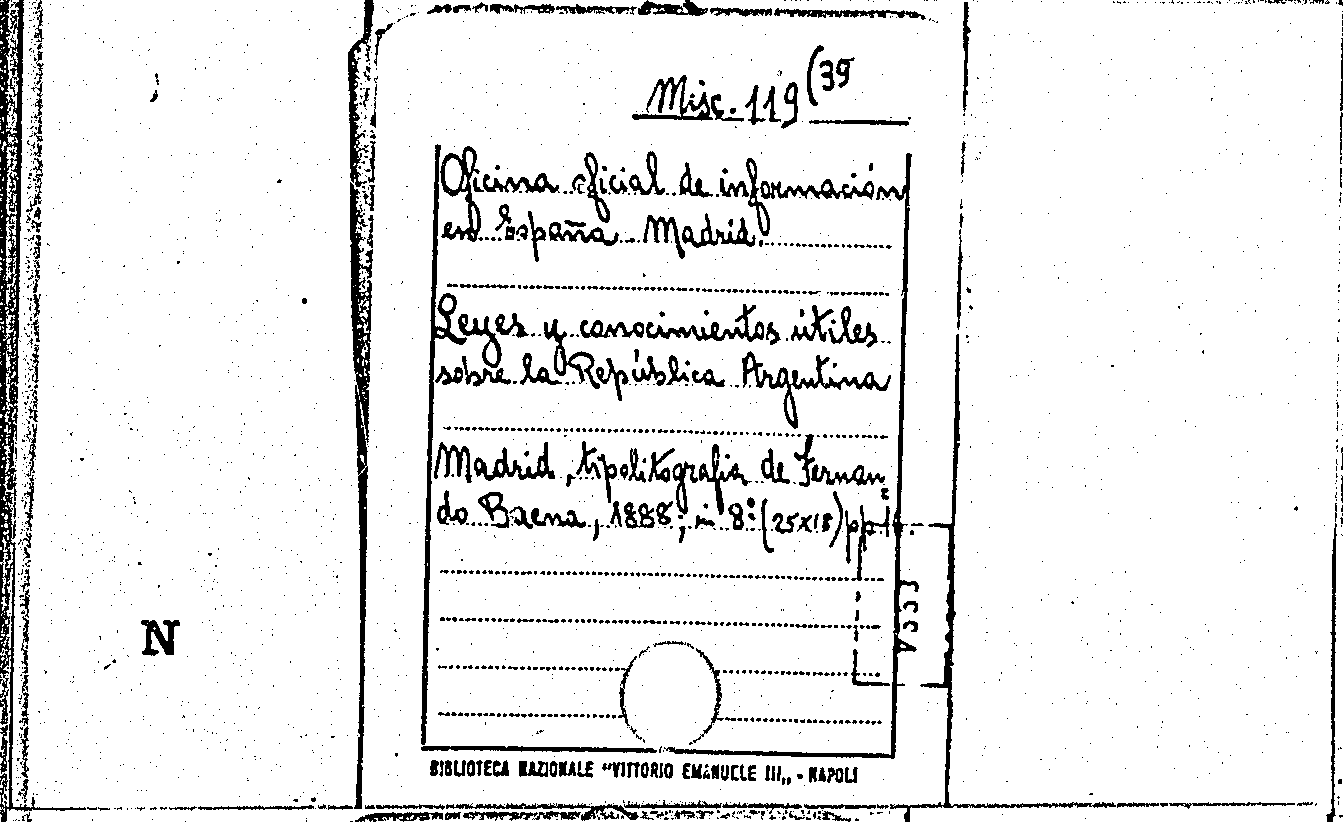 Misc. 119 (39
Oficina oficial de información
en España. Madrid.
Leyes y conocimientos útiles
sobre la República Argentina
Madrid, tipolitografia de Fernan
do Baena, 1888; in 8º (25x18) pp.
N
BIBLIOTECA NAZIONALE "VITTORIO EMANUELE III„ - NAPOLI